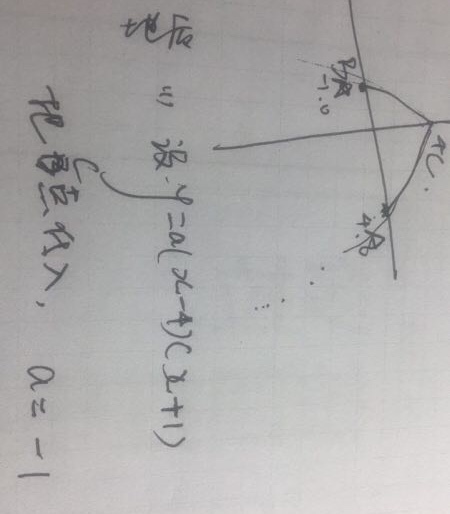 C
B
-1.0
A
4.0
(1) 设 y=a(x-4)(x+1)
把 C 点代入, a=-1